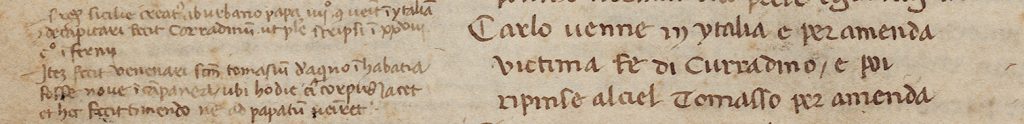 rex sicilie creat' ab urbano papa iiij° q venit i ytaliā
decapitari fecit Corradinum ut ple scripsi i
c° iferni
Itez fecit venenari scm tomasium d'aquo i habatia
fosse nove i canpanea ubi hodie ei corpus iacet
et hec fecit timendo ne ad papatū veiret
Carlo venne in ytalia e per amenda
victima fe di Curradino / e poi
ripinse al ciel Tomasso per amenda